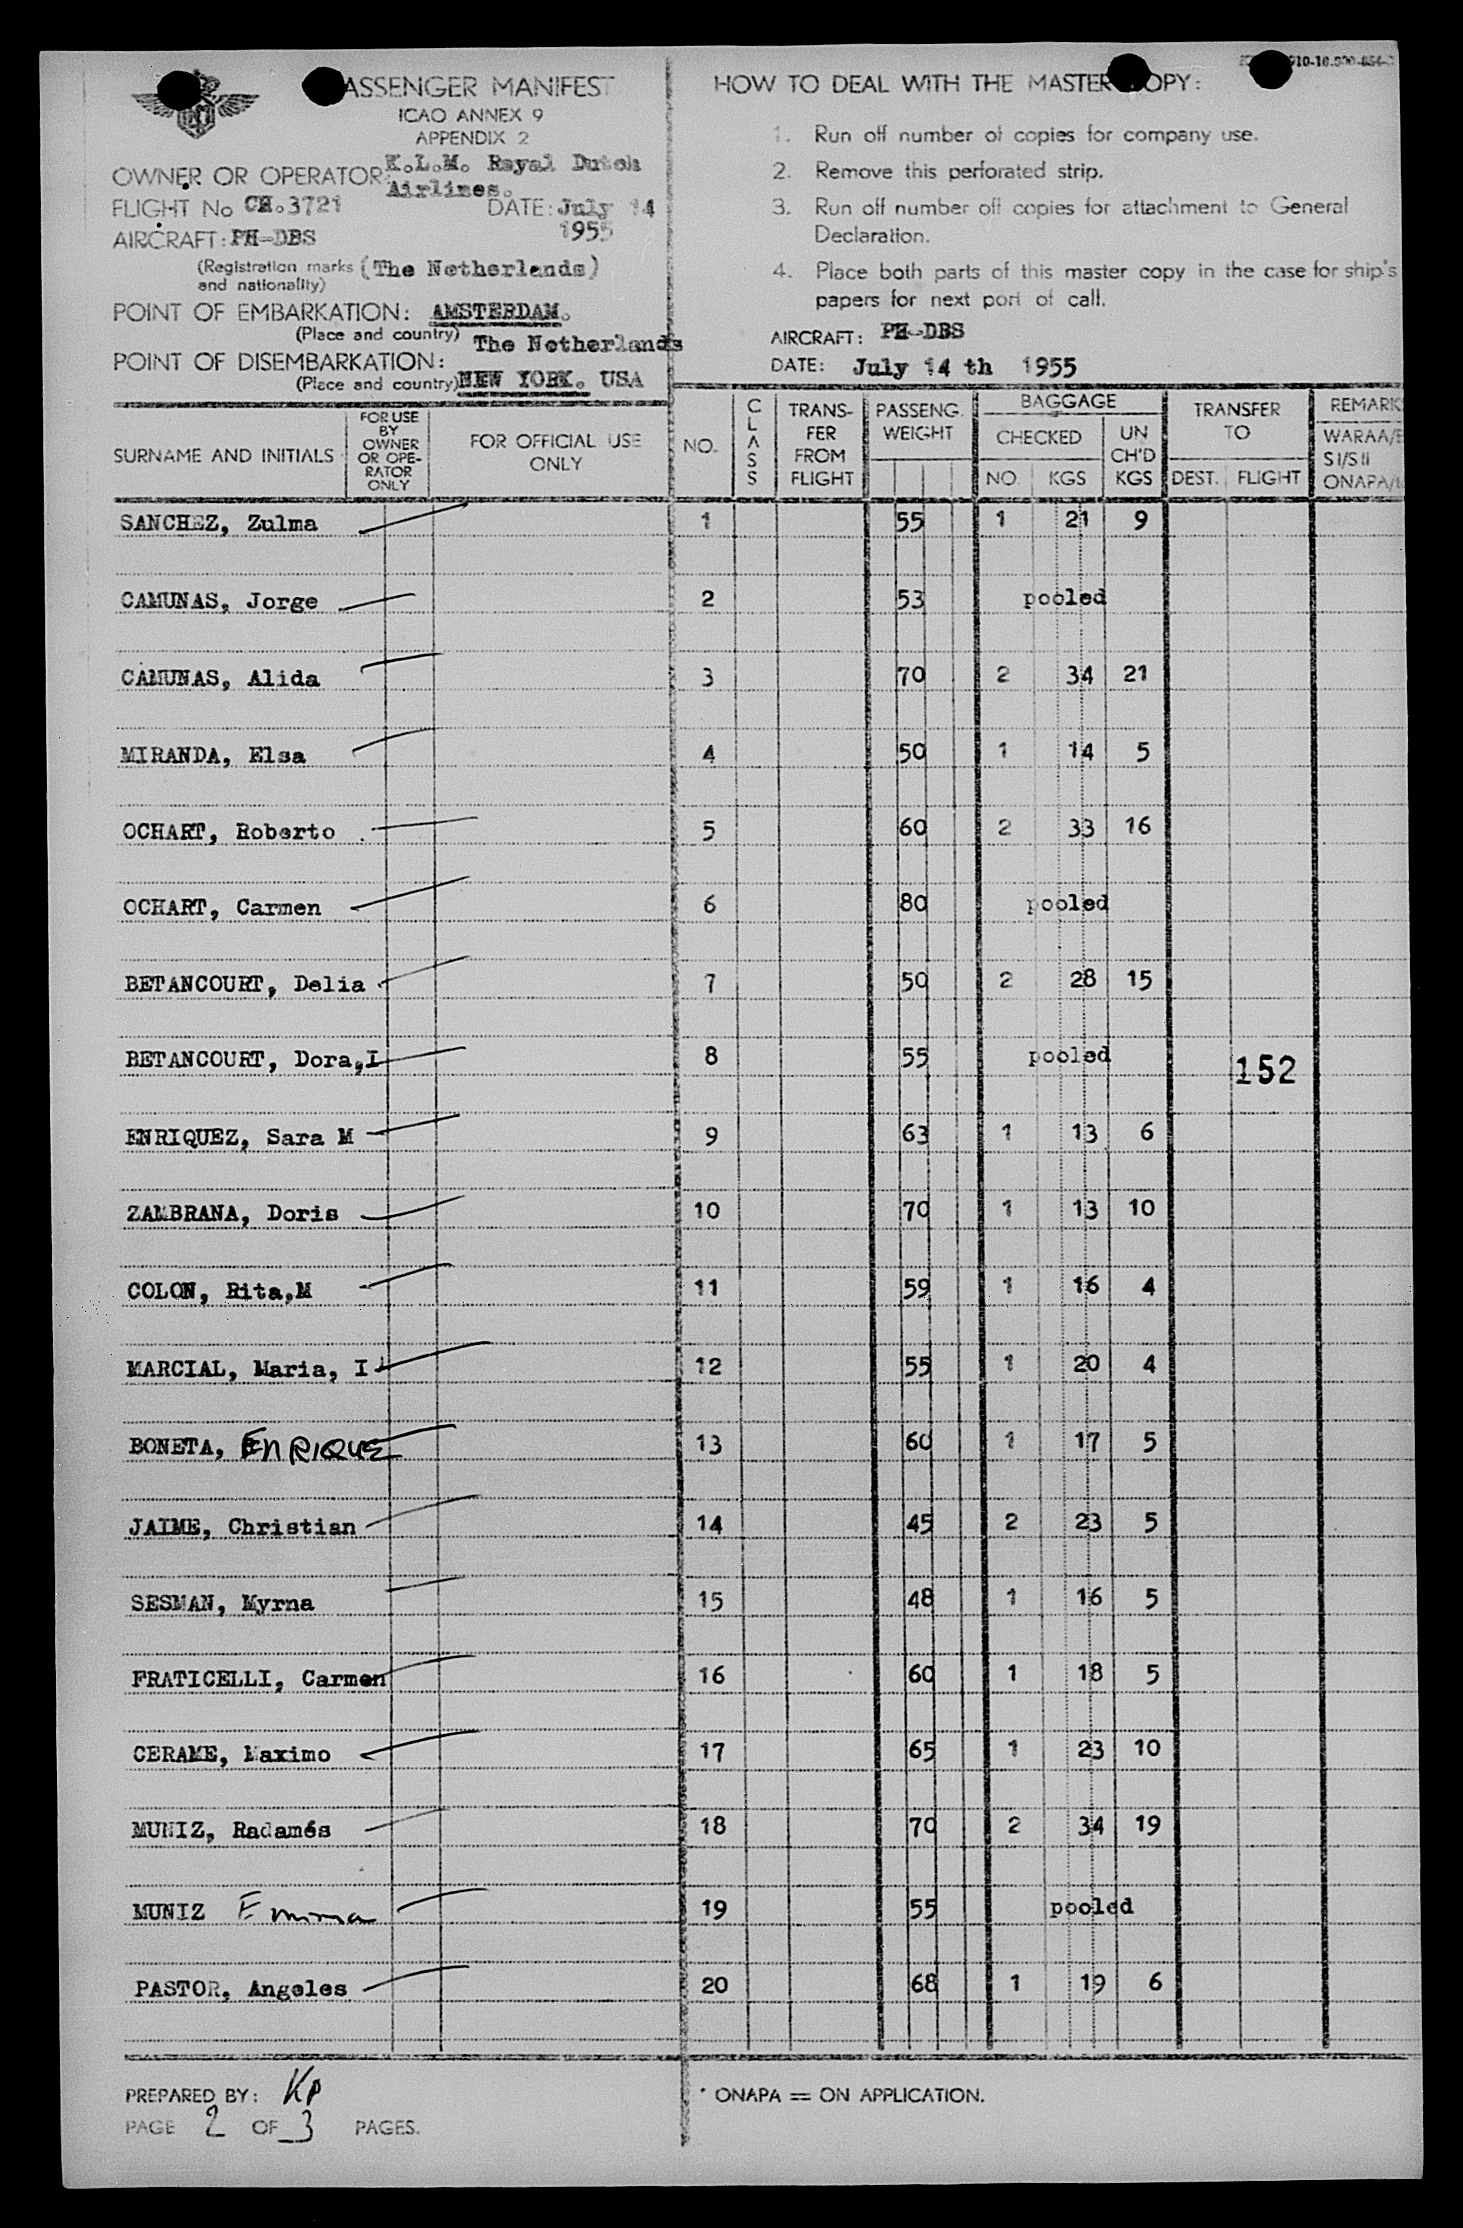 PASSENGER MANIFEST
ICAO ANNEX 9
APPENDIX 2
OWNER OR OPERATOR: K.L.M. Royal Dutch
Airlines.
FLIGHT No CH.3721 DATE: July 14
1955
AIRCRAFT: PH-DBS
(Registration marks (The Netherlands)
and nationality)
POINT OF EMBARKATION: AMSTERDAM.
(Place and country) The Netherlands
POINT OF DISEMBARKATION:
(Place and country) NEW YORK. USA
HOW TO DEAL WITH THE MASTER COPY:
1. Run off number of copies for company use.
2. Remove this perforated strip.
3. Run off number off copies for attachment to General
Declaration.
4. Place both parts of this master copy in the case for ship's
papers for next port of call.
AIRCRAFT: PH-DBS
DATE: July 14 th 1955
SURNAME AND INITIALS
FOR USE
BY
OWNER
OR OPE-
RATOR
ONLY
FOR OFFICIAL USE
ONLY
NO.
CLASS
TRANS-
FER
FROM
FLIGHT
PASSENG.
WEIGHT
BAGGAGE
CHECKED
NO. KGS
UN
CH'D
KGS
TRANSFER
TO
DEST. FLIGHT
REMARK
WARAA/
SI/SII
ONAPA/
SANCHEZ, Zulma 1 55 1 21 9
CAMUNAS, Jorge 2 53 pooled
CAMUNAS, Alida 3 70 2 34 21
MIRANDA, Elsa 4 50 1 14 5
OCHART, Roberto 5 60 2 33 16
OCHART, Carmen 6 80 pooled
BETANCOURT, Delia 7 50 2 28 15
BETANCOURT, Dora,I 8 55 pooled 152
ENRIQUEZ, Sara M 9 63 1 13 6
ZAMBRANA, Doris 10 70 1 13 10
COLON, Rita,M 11 59 1 16 4
MARCIAL, Maria, I 12 55 1 20 4
BONETA, ENRIQUE 13 60 1 17 5
JAIME, Christian 14 45 2 23 5
SESMAN, Myrna 15 48 1 16 5
FRATICELLI, Carmen 16 60 1 18 5
CERAME, Maximo 17 65 1 23 10
MUNIZ, Radamés 18 70 2 34 19
MUNIZ Emma 19 55 pooled
PASTOR, Angeles 20 68 1 19 6
PREPARED BY: KP
PAGE 2 OF 3 PAGES.
* ONAPA == ON APPLICATION.